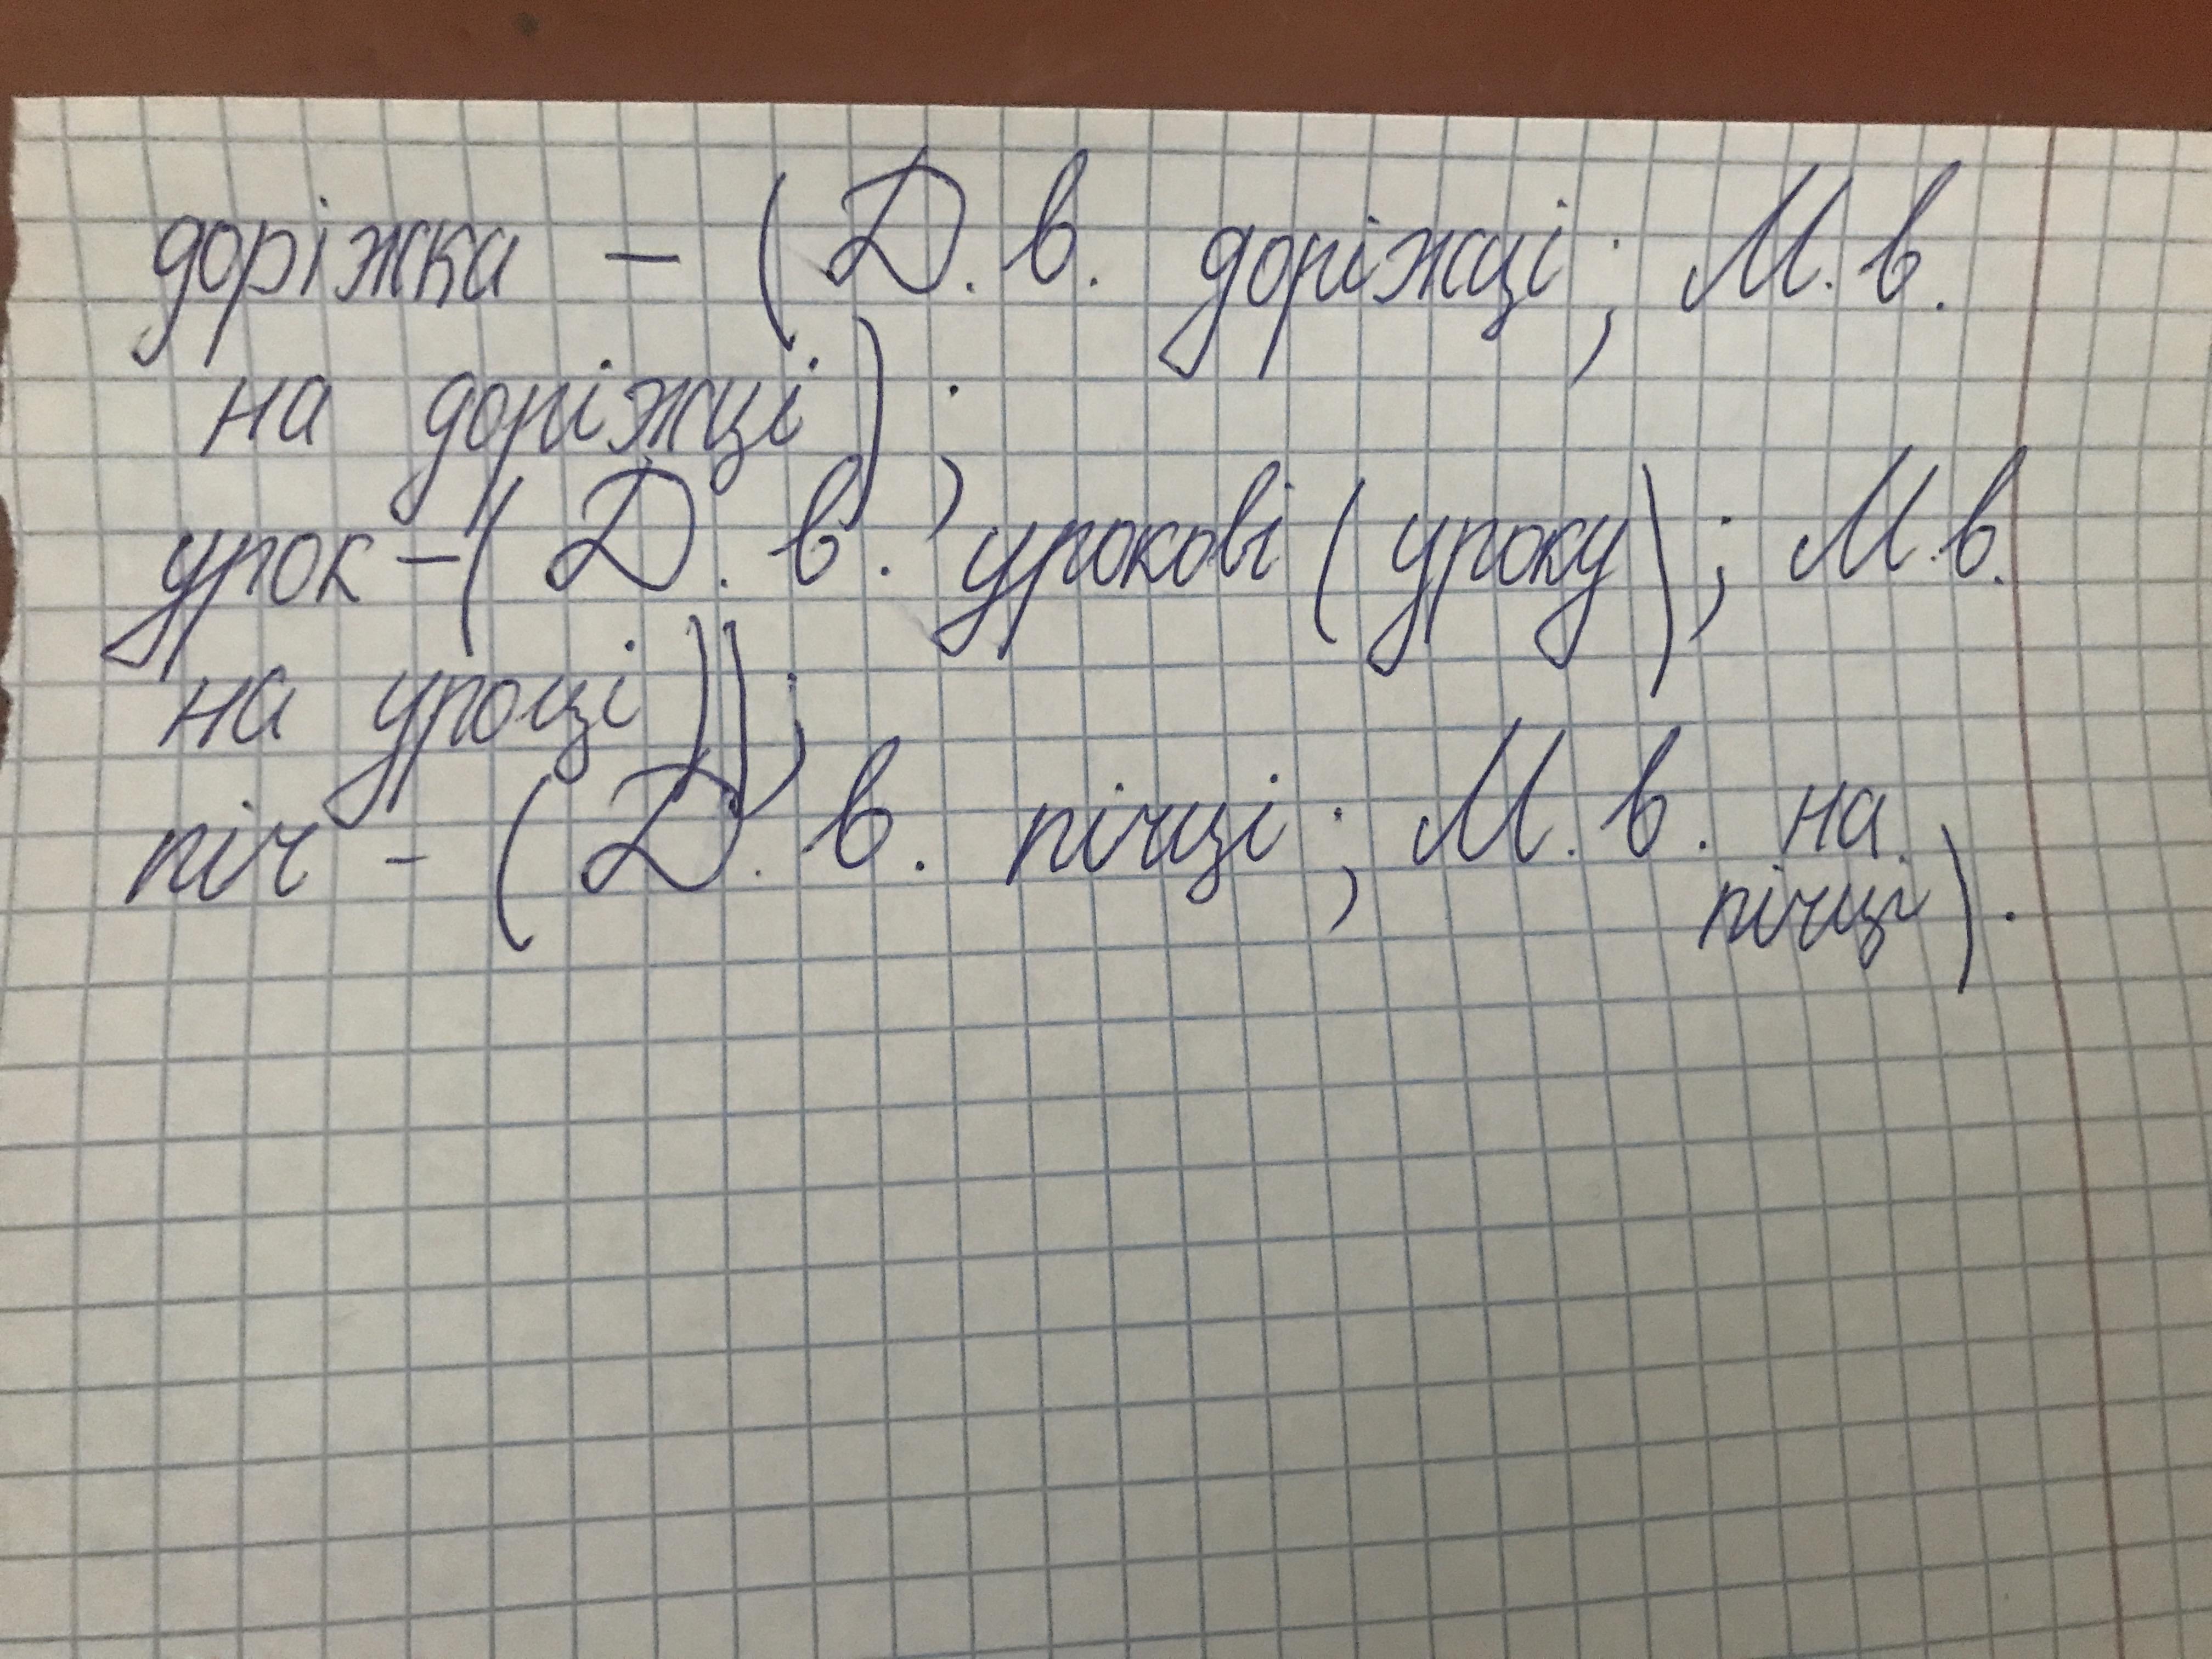 доріжка – (Д. в. доріжці; М. в.
на доріжці);
урок – (Д. в. урокові (уроку); М. в.
на уроці));
піч - (Д. в. пічці; М. в. на
пічці).